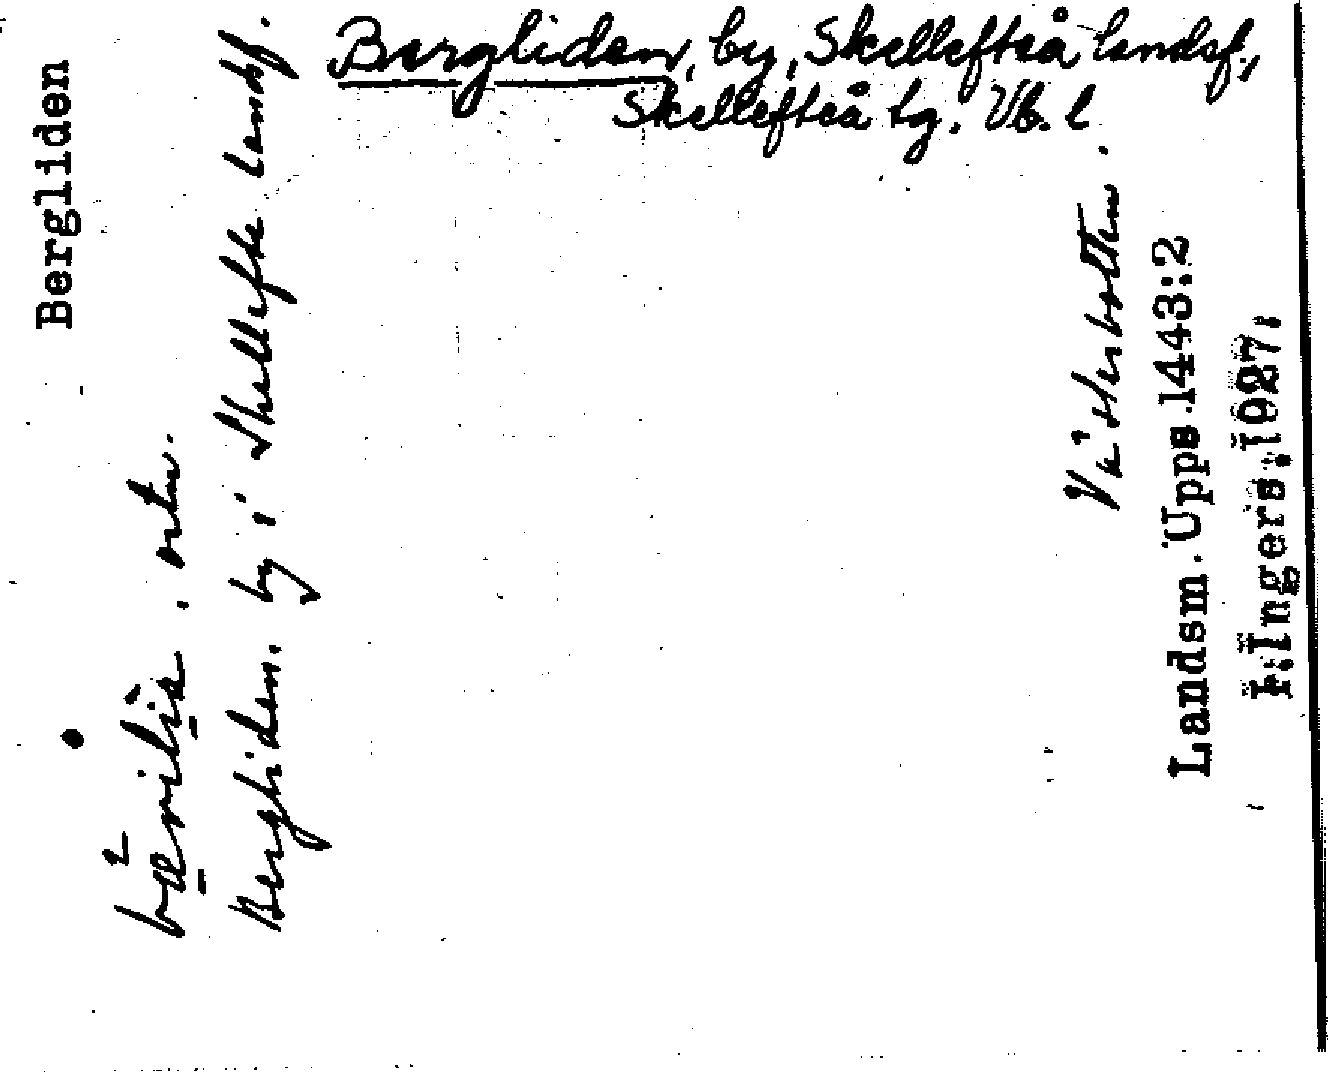 Bergliden, by, Skellefteå landsf.,
Skellefteå tg. Vb. l
Bergliden
ortn.
Bergliden. by i Skellefte landsf.
Västerbotten.
Landsm. Upps. 1443:2
I. Ingers. 1927.